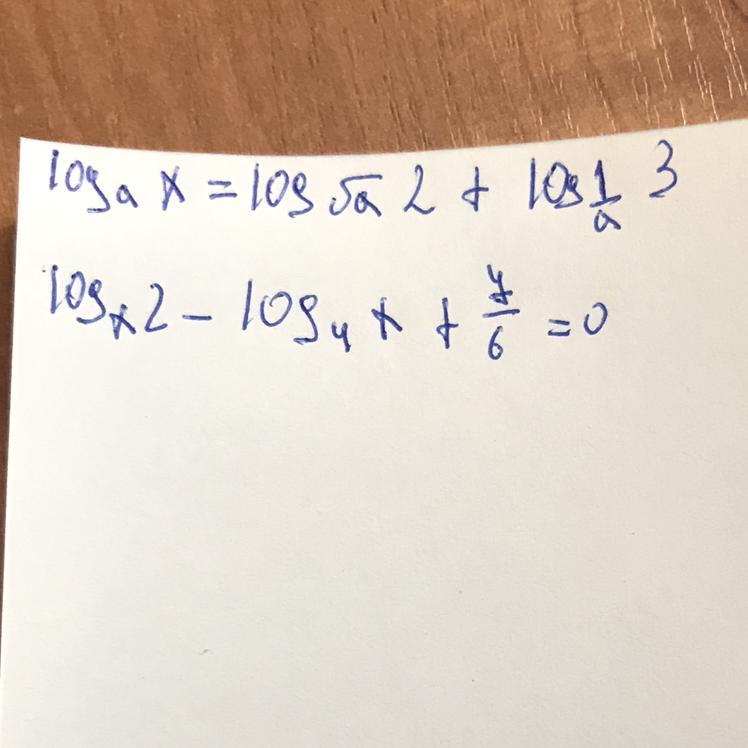 logₐ x = log_√a 2 + log_1/a 3
logₓ 2 − log₄ x + 7/6 = 0